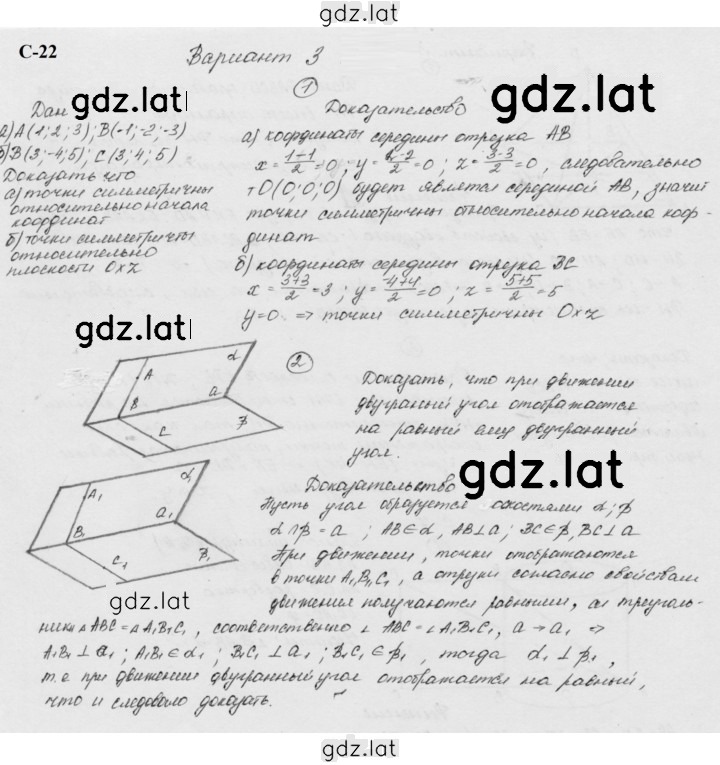 gdz.lat
С-22
Вариант 3
gdz.lat
gdz.lat
1
Дан
а) А(1; 2; 3); В(-1; -2; -3)
б) В(3; -4; 5); С(3; 4; 5)
Доказать что
а) точки симметричны
относительно начала
координат
б) точки симметричны
относительно
плоскости Oxz
Доказательство
а) координаты середины отрезка АВ
x = 1-1/2 = 0; y = 2-2/2 = 0; z = 3-3/2 = 0, следовательно
т О(0; 0; 0) будет является серединой АВ, значит
точки симметричны относительно начала коор-
динат
б) координаты середины отрезка ВС
x = 3+3/2 = 3; y = -4+4/2 = 0; z = 5+5/2 = 5
y=0 => точки симметричны Oxz
gdz.lat
2
A α
B a
C β
Доказать, что при движении
двугранный угол отображается
на равный ему двугранный
угол.
gdz.lat
A₁ α₁
B₁ a₁
C₁ β₁
Доказательство
Пусть угол образуется скостями α; β
α ∩ β = a; AB ∈ α, AB ⊥ a; BC ∈ β, BC ⊥ a
При движении, точки отображаются
в точки A₁B₁C₁, а отрезки согласно свойствам
движения получаются равными,
треуголь-
gdz.lat
ники Δ ABC = Δ A₁B₁C₁, соответственно ∠ ABC = ∠ A₁B₁C₁, a → a₁ =>
A₁B₁ ⊥ a₁; A₁B₁ ∈ α₁; B₁C₁ ⊥ a₁; B₁C₁ ∈ β₁, тогда α₁ ⊥ β₁,
т.е. при движении двугранный угол отображается на равный,
что и следовало доказать.
gdz.lat